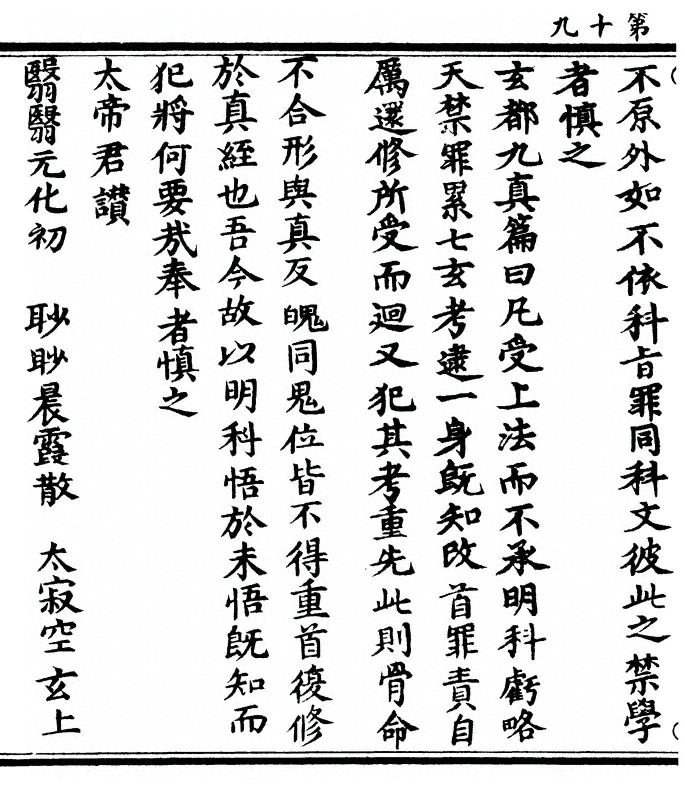 第十九
不原外如不依科旨罪同科文彼此之禁學
者慎之
玄都九真篇曰凡受上法而不承明科虧略
天禁罪累七玄考逮一身既知改首罪責自
厲還修所受而迴又犯其考重先此則骨命
不合形與真反魄同鬼位皆不得重首復修
於真經也吾今故以明科悟於未悟既知而
犯將何要哉奉者慎之
太帝君讃
翳翳元化初　眇眇晨霞散　太寂空玄上